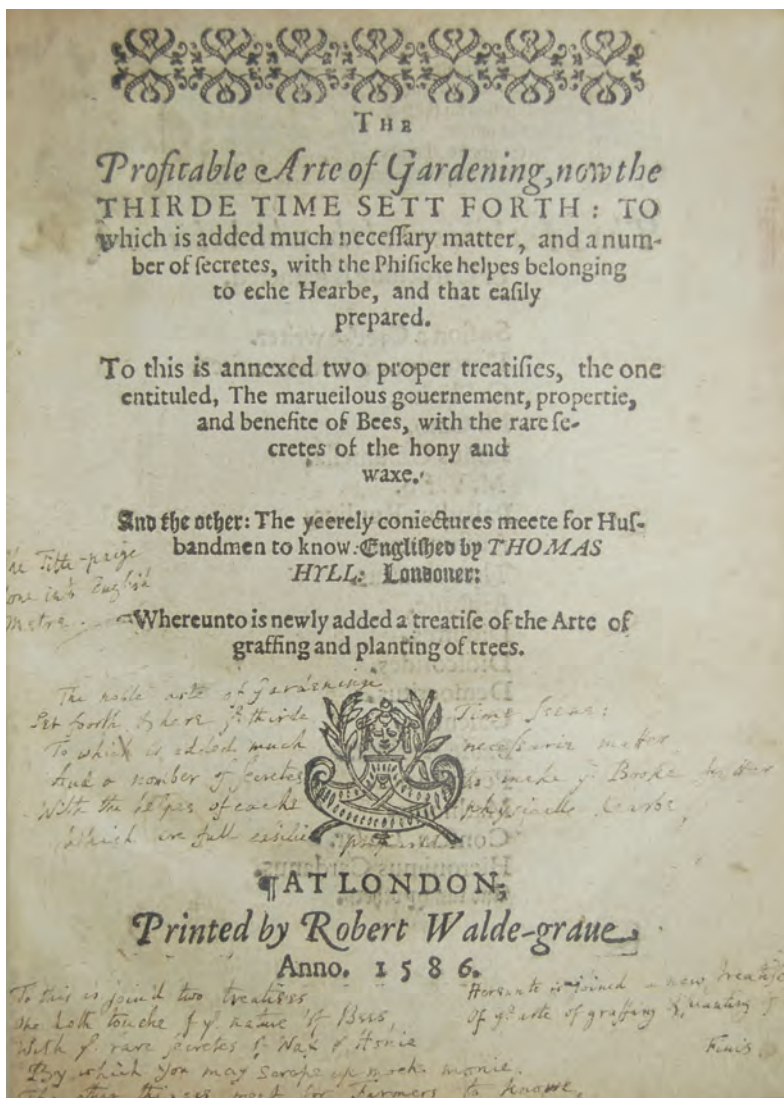 THE
Profitable Arte of Gardening, now the
THIRDE TIME SETT FORTH: TO
which is added much necessary matter, and a num-
ber of secretes, with the Phisicke helpes belonging
to eche Hearbe, and that easily
prepared.
To this is annexed two proper treatises, the one
entituled, The marueilous gouernement, propertie,
and benefite of Bees, with the rare se-
cretes of the hony and
waxe.
And the other: The yeerely coniectures meete for Hus-
bandmen to know: Englished by THOMAS
HYLL: Londoner:
Title-paige
into English
Metre
Whereunto is newly added a treatise of the Arte of
graffing and planting of trees.
The noble arte of Gardeninge
Set forth here ye thirde Time
To which is added much necessarie matter
And a number of secretes to make ye Booke
With the helpes of eache
Which are full easilie
¶AT LONDON,
Printed by Robert Walde-graue
Anno. 1586.
To this is join'd two treatises
One doth touche of ye nature of Bees,
With ye rare secretes of Wax & Honie
By which you may scrape up monie.
The other thinges meet for Farmers to knowe,
Hereunto is joined a new treatise
Of ye arte of graffing & planting
Finis